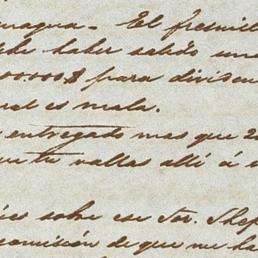 nagua. - El fresnill
haber salido un
00.000$ para dividen
nal es mala.
entregado mas que 2
que tu vallas allí á
sobre ese Sor. Shep
comisión de que me ha